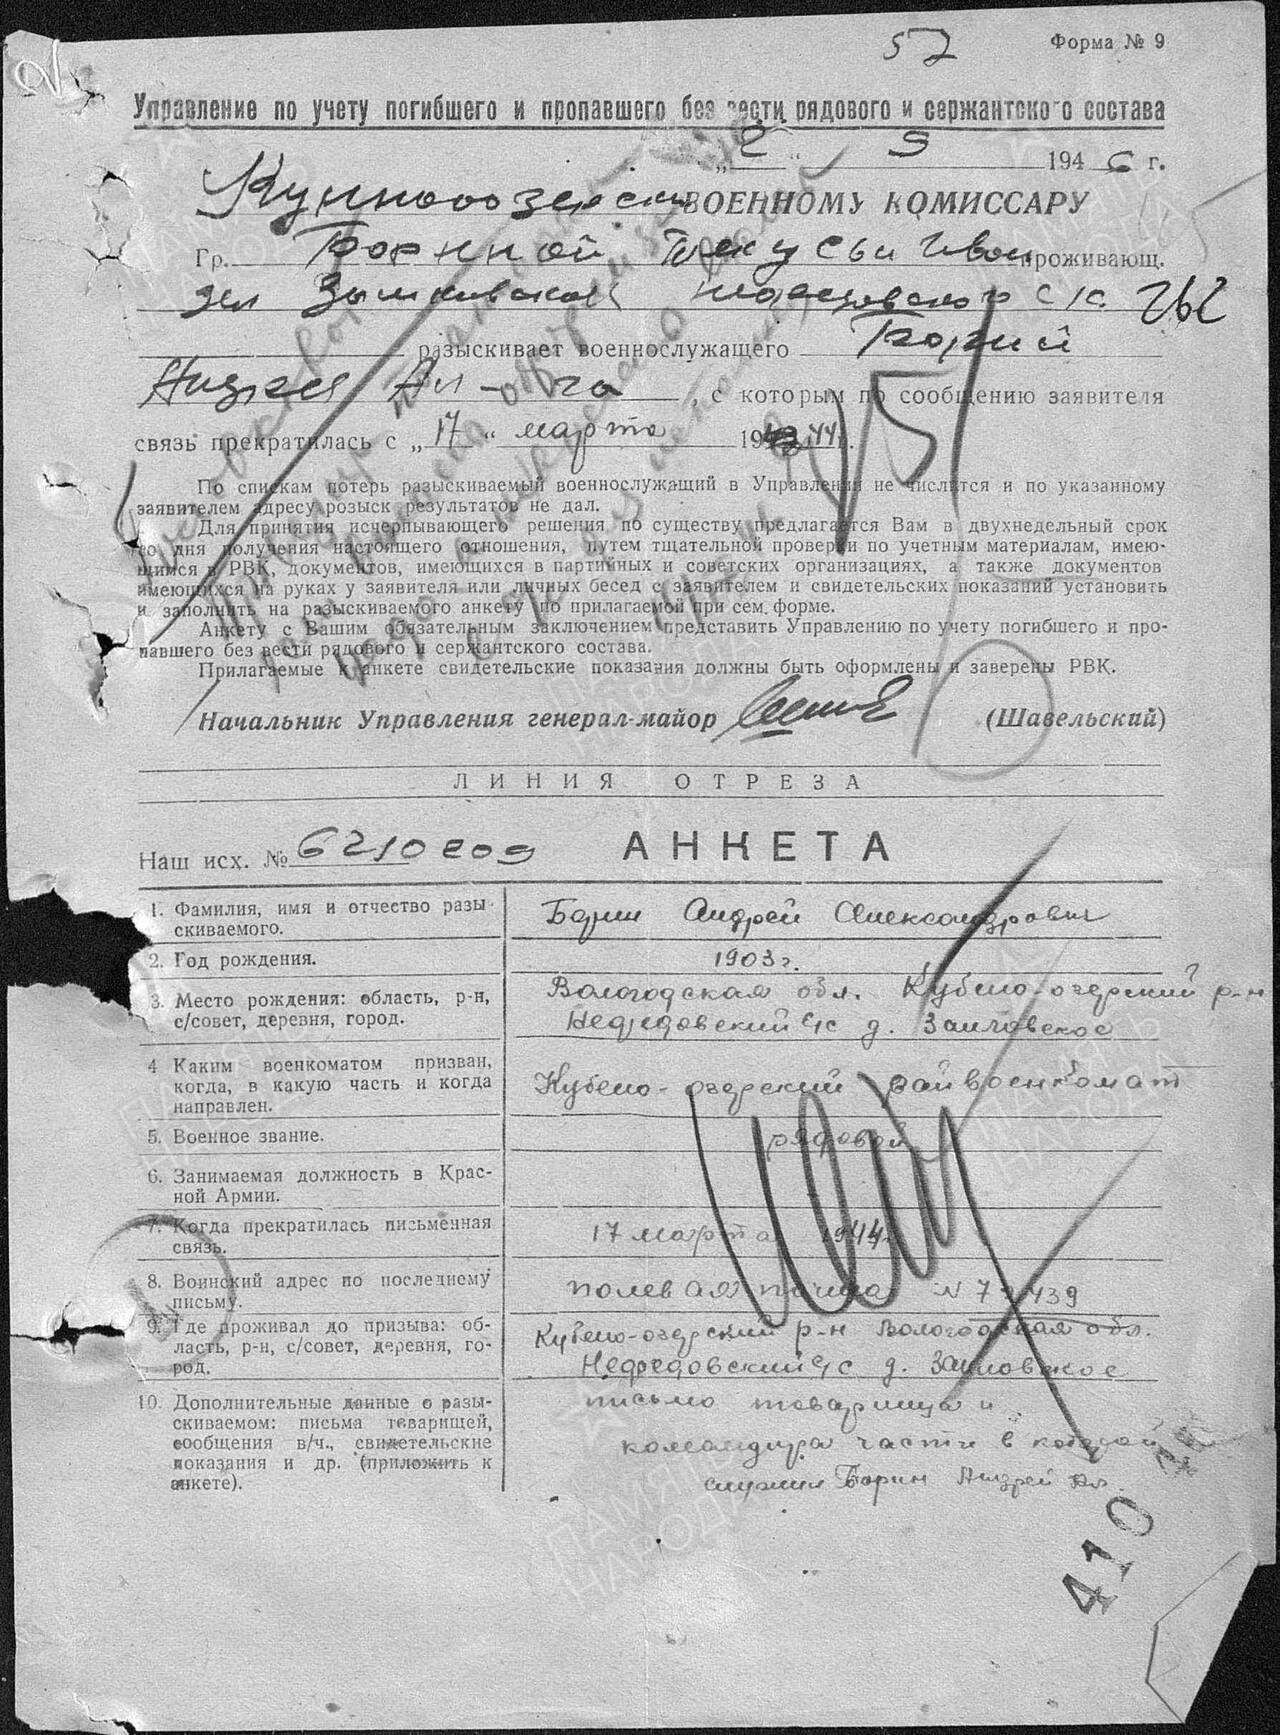 57 Форма № 9
Управление по учету погибшего и пропавшего без вести рядового и сержантского состава
„ 2 “ 9 1946 г.
ВОЕННОМУ КОМИССАРУ
Гр. проживающ.
с/с.
разыскивает военнослужащего Борин
Андрея Ал-ча, с которым по сообщению заявителя
связь прекратилась с „ 17 “ марта 1944 г.
По спискам потерь разыскиваемый военнослужащий в Управлении не числится и по указанному
заявителем адресу розыск результатов не дал.
Для принятия исчерпывающего решения по существу предлагается Вам в двухнедельный срок
со дня получения настоящего отношения, путем тщательной проверки по учетным материалам, имею-
щимся в РВК, документов, имеющихся в партийных и советских организациях, а также документов
имеющихся на руках у заявителя или личных бесед с заявителем и свидетельских показаний установить
и заполнить на разыскиваемого анкету по прилагаемой при сем форме.
Анкету с Вашим обязательным заключением представить Управлению по учету погибшего и про-
павшего без вести рядового и сержантского состава.
Прилагаемые к анкете свидетельские показания должны быть оформлены и заверены РВК.
Начальник Управления генерал-майор (Шавельский)
ЛИНИЯ ОТРЕЗА
Наш исх. № 6210209 АНКЕТА
1. Фамилия, имя и отчество разы-
скиваемого.
Борин Андрей Александрович
2. Год рождения.
1903 г.
3. Место рождения: область, р-н,
с/совет, деревня, город.
Вологодская обл. Кубено-озерский р-н
с/с д.
4 Каким военкоматом призван,
когда, в какую часть и когда
направлен.
Кубено-озерский райвоенкомат
5. Военное звание.
рядовой
6. Занимаемая должность в Крас-
ной Армии.
7. Когда прекратилась письменная
связь.
17 марта 1944 г.
8. Воинский адрес по последнему
письму.
полевая почта N
9. Где проживал до призыва: об-
ласть, р-н, с/совет, деревня, го-
род.
Кубено-озерский р-н Вологодская обл.
с/с д.
10. Дополнительные данные о разы-
скиваемом: письма товарищей,
сообщения в/ч., свидетельские
показания и др. (приложить к
анкете).
письмо товарища и
командира части в которой
служил Борин Андрей Ал.
410
ПАМЯТЬ
НАРОДА